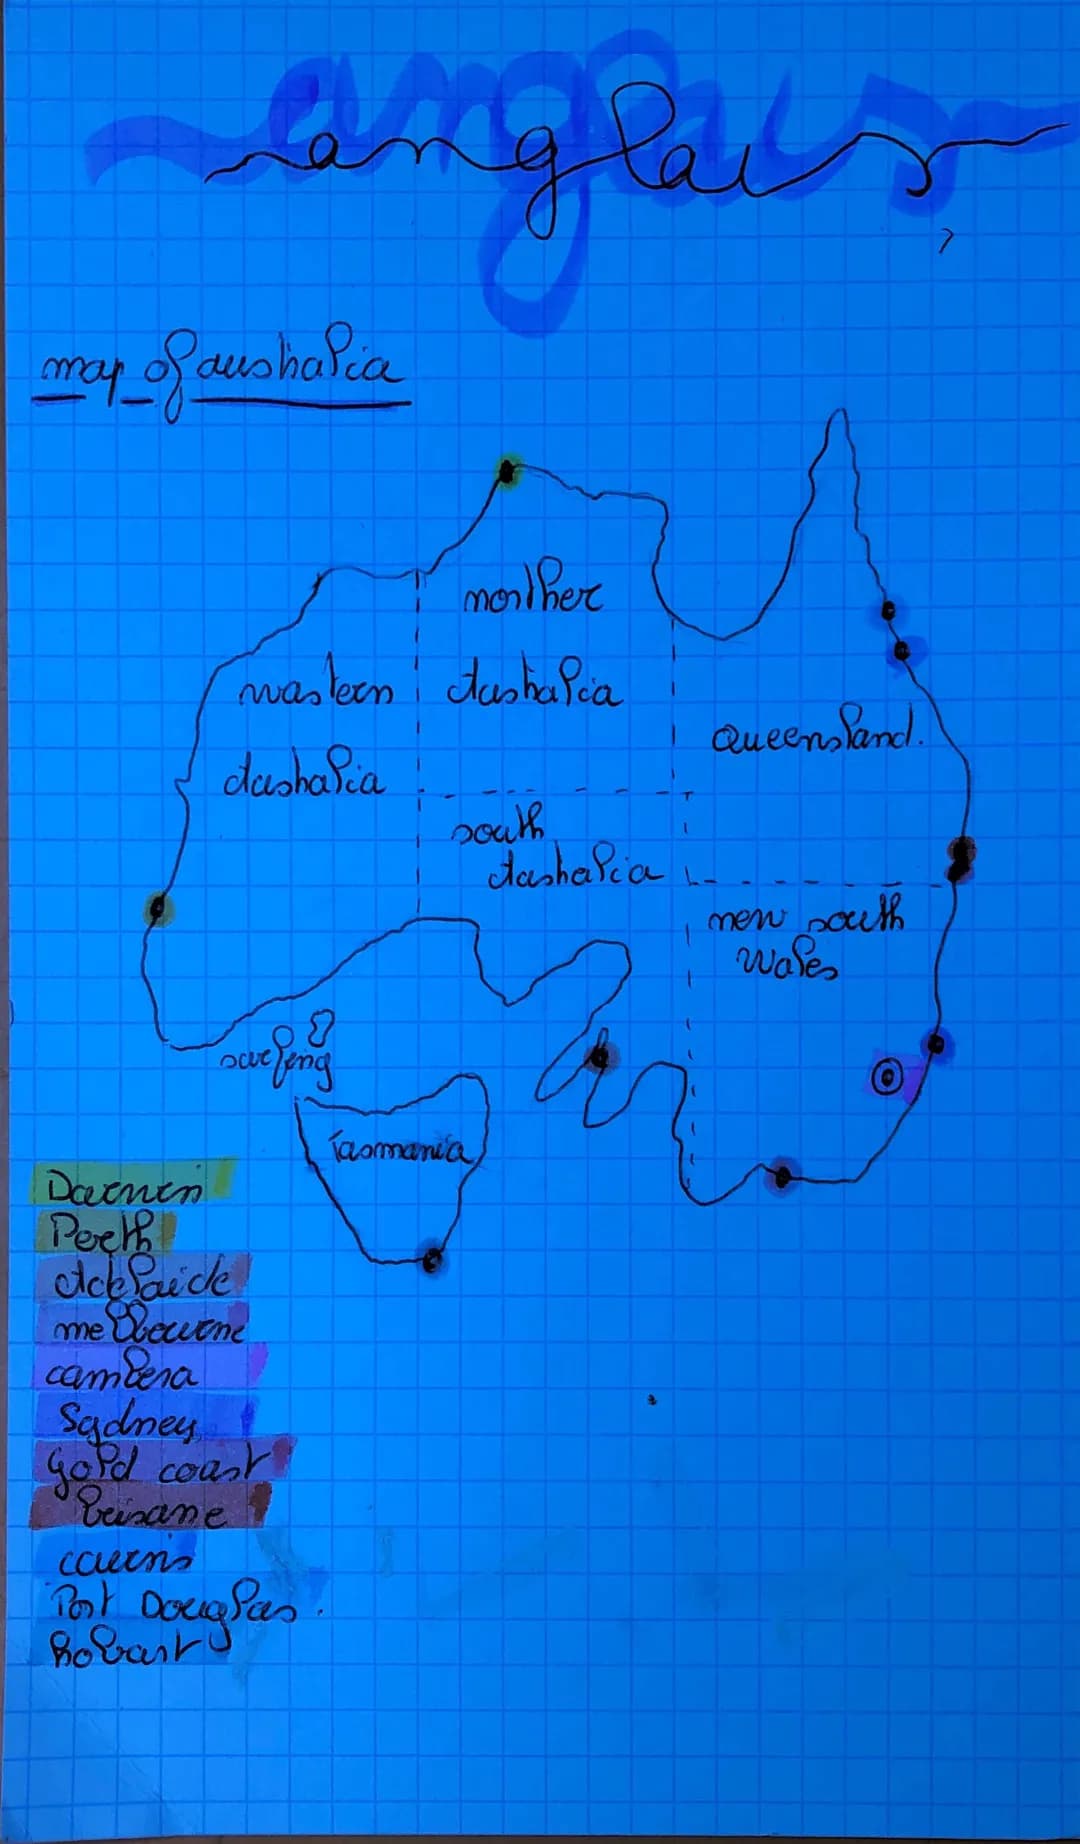 anglais
map of australia
norther
Australia
wastern
Australia
queensland.
south
Australia
new south
Wales
surfing
Tasmania
Darwin
Perth
Adelaide
melbourne
cambera
Sydney
gold coast
brisane
cairns
Port Douglas.
Hobart